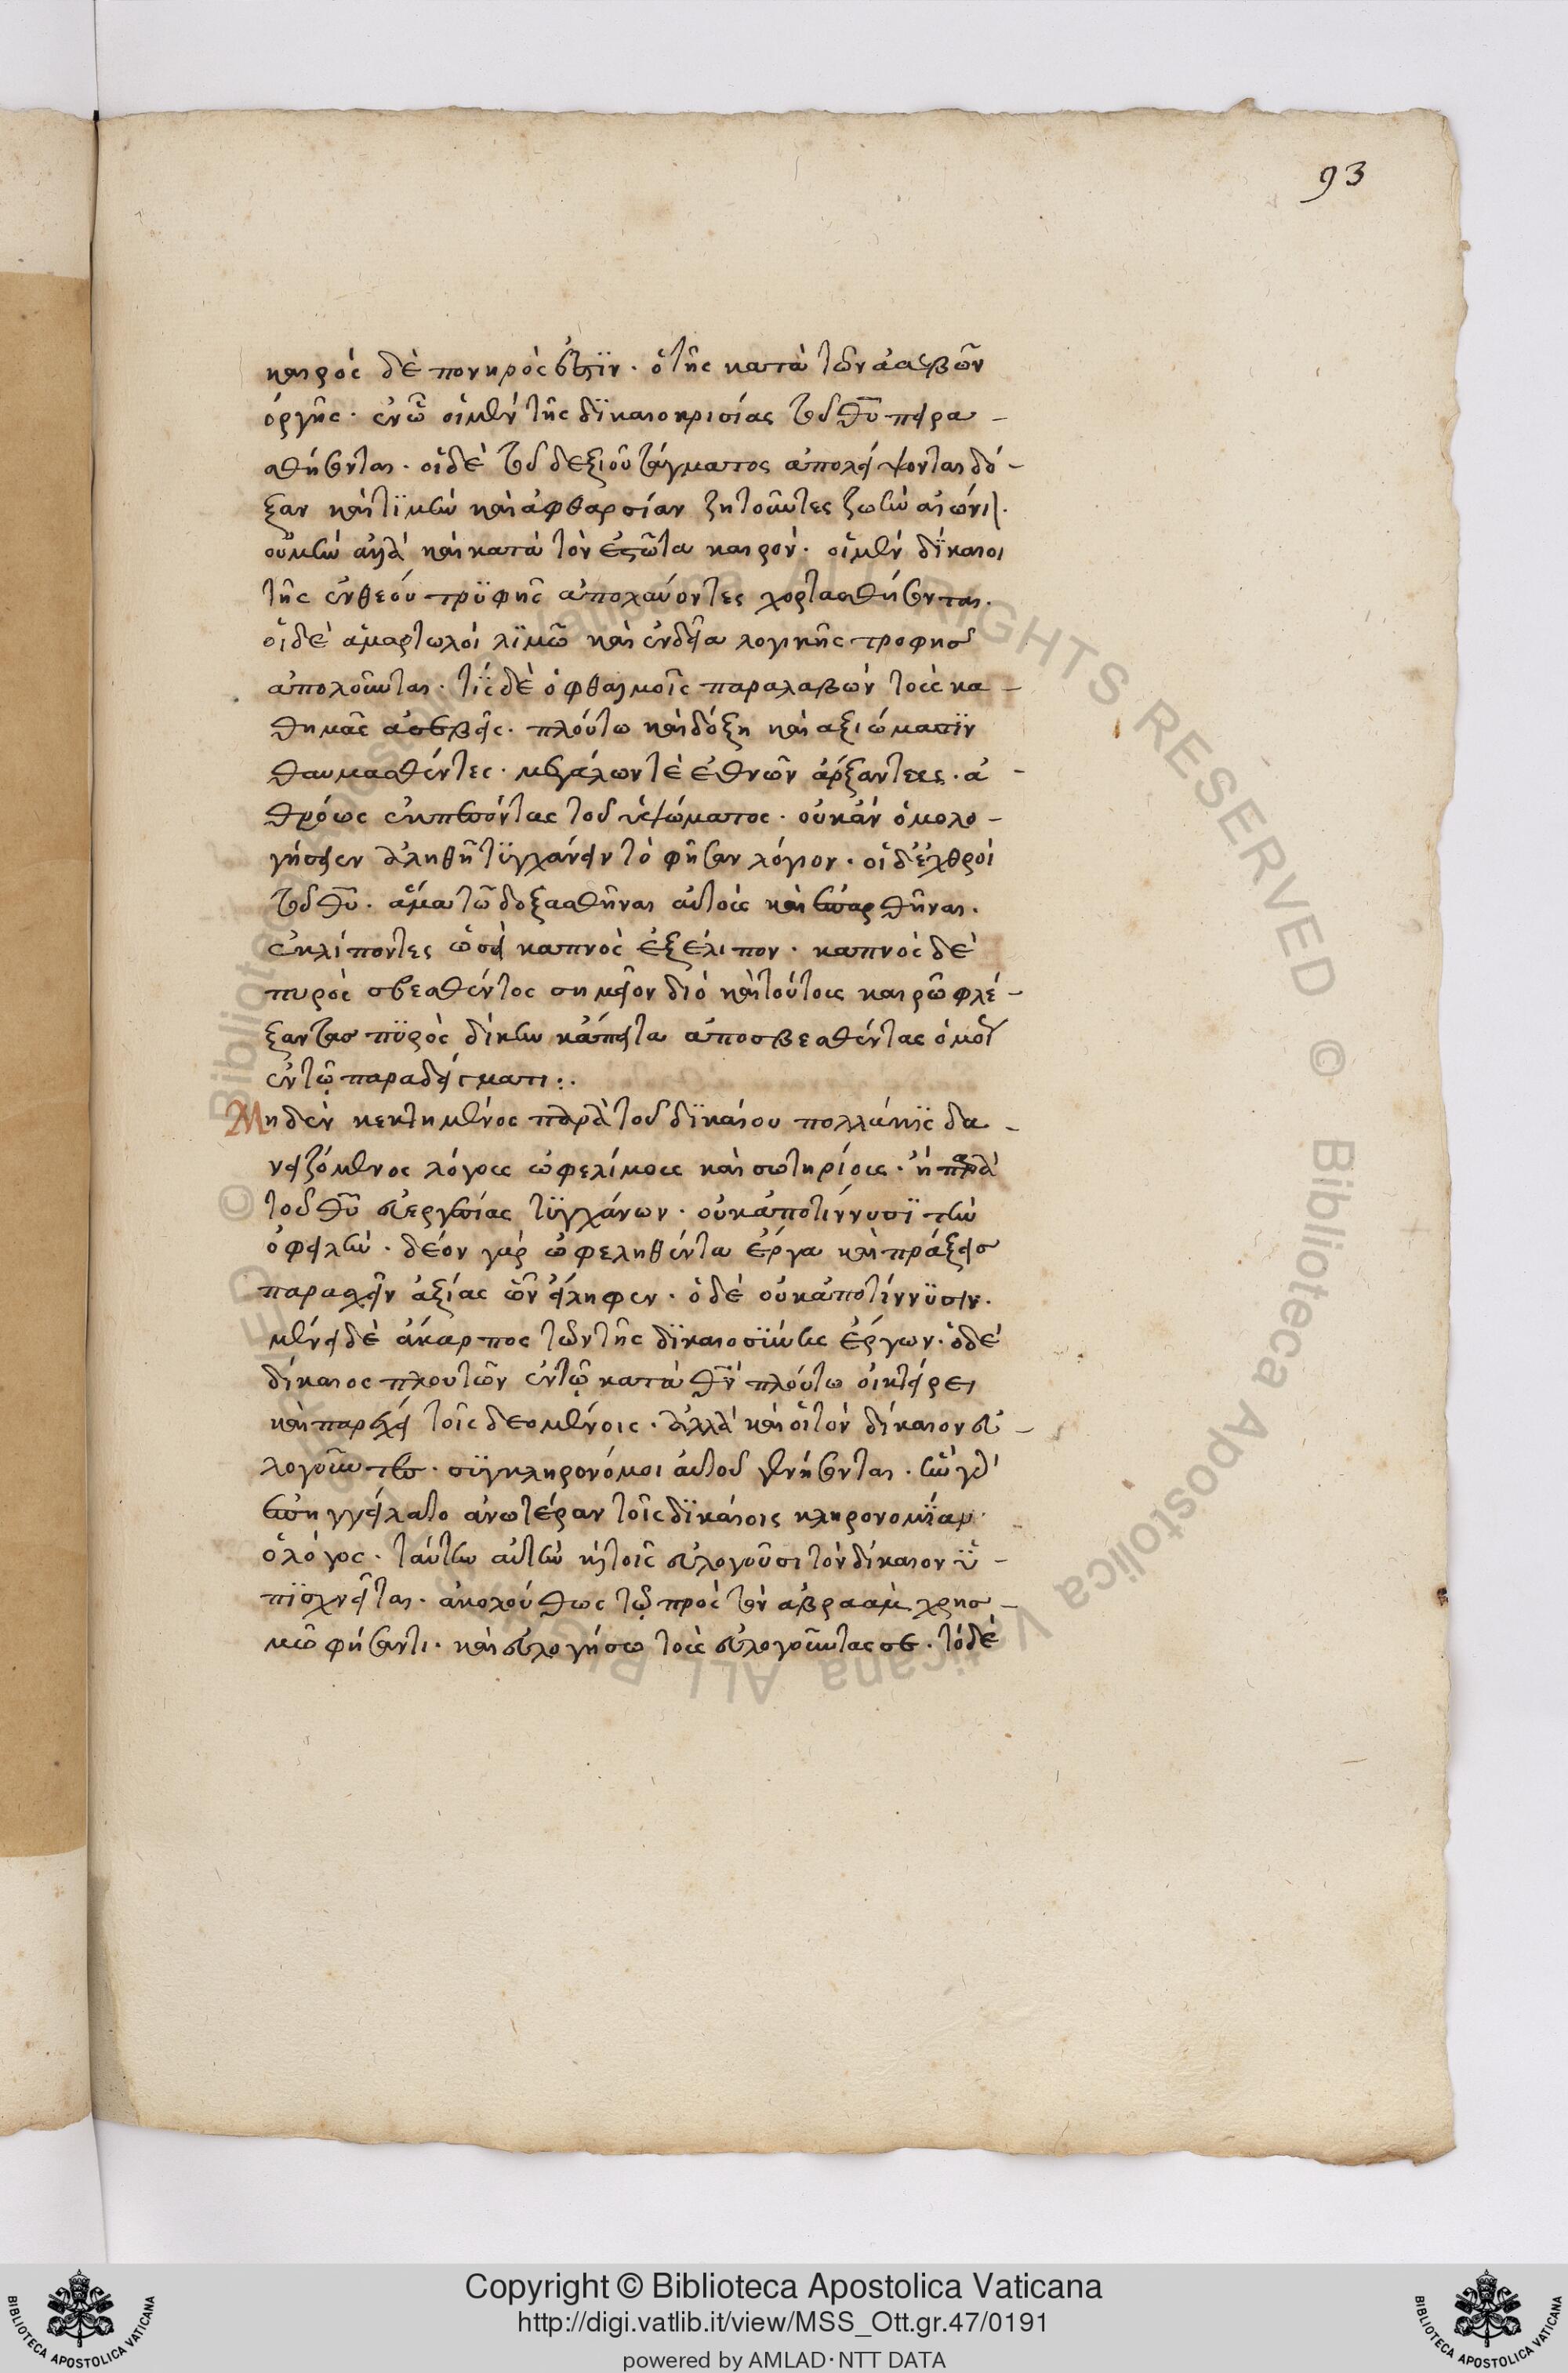 93
καιρὸς δὲ πονηρὸς ἐστϊν· ὁ τῆς κατὰ τῶν ἀσεβῶν
ὀργῆς· ἐν ὧ οἱ μὲν τῆς δϊκαιοκρισίας τοῦ θῦ πειρα-
θήσονται· οἱ δὲ τοῦ δεξιοῦ τάγματος ἀπολήψονται δό-
ξαν καὶ τϊμὴν καὶ ἀφθαρσίαν ζητοῦντες ζωὴν αἰώνι
οὐ μὴν ἀλλὰ καὶ κατὰ τὸν ἐστῶτα καιρὸν· οἱ μὲν δίκαιοι
τῆς ἐνθέου τρϋφῆς ἀπολαύοντες χορτασθήσονται.
οἱ δὲ ἁμαρτωλοὶ λϊμῶ καὶ ἐνδεία λογικῆς τροφῆς
ἀπολοῦνται· τίς δὲ ὀφθαλμοῖς παραλαβὼν τοὺς κα-
θημᾶς ἀσεβεῖς· πλούτω καὶ δόξη καὶ ἀξιώμασϊν
θαυμασθέντες· μεγάλων τὲ ἐθνῶν ἄρξαντες· ἀ-
θρόως ἐκπεσόντας τοῦ ὑψώματος· οὐκ ἂν ὁμολο-
γήσειεν ἀληθῆ τϋγχάνειν τὸ φῆσαν λόγιον· οἱ δ' ἐχθροὶ
τοῦ θῦ· ἅμα τῶ δοξασθῆναι αὐτοὺς καὶ ἐπαρθῆναι.
ἐκλίποντες ὡσεὶ καπνὸς ἐξέλιπον· καπνὸς δὲ
πυρὸς σβεσθέντος σημεῖον διὸ καὶ τούτοις καιρῶ φλέ-
ξαντας πϋρὸς δίκην κἄπειτα ἀποσβεσθέντας ὁμοῦ
ἐν τῷ παραδείγματι:.
Μηδὲν κεκτημένος παρὰ τοῦ δϊκαίου πολλάκϊς δα-
νειζόμενος λόγοις ὠφελίμοις καὶ σωτηρίοις· ἢ παρὰ
τοῦ θῦ εὐεργεσίας τϋγχάνων· οὐκ ἀποτίννυσϊ τὴν
ὀφειλὴν· δέον γὰρ ὠφεληθέντα ἔργα καὶ πράξεις
παρασχεῖν ἀξίας ὧν εἴληφεν· ὁ δὲ οὐκ ἀποτίννϋσιν.
μένει δὲ ἄκαρπος τῶν τῆς δϊκαιοσϋνης ἔργων· ὁ δὲ
δίκαιος πλουτῶν ἐν τῷ κατὰ θν̄ πλούτω οἰκτείρει
καὶ παρέχει τοῖς δεομένοις· ἀλλὰ καὶ οἱ τὸν δίκαιον εὐ-
λογοῦντες· σϋγκληρονόμοι αὐτοῦ γενήσονται· ἣν γὰρ
ἐπηγγείλατο ἀνωτέραν τοῖς δϊκαίοις κληρονομϊαν
ὁ λόγος· ταύτην αὐτὴν καὶ τοῖς εὐλογοῦσι τὸν δίκαιον ϋ-
πϊσχνεῖται· ἀκολούθως τῷ πρὸς τὸν ἀβραὰμ χρησ-
μῶ φήσαντι· καὶ εὐλογήσω τοὺς εὐλογοῦντας σε· τὸ δὲ
Copyright © Biblioteca Apostolica Vaticana
http://digi.vatlib.it/view/MSS_Ott.gr.47/0191
powered by AMLAD·NTT DATA